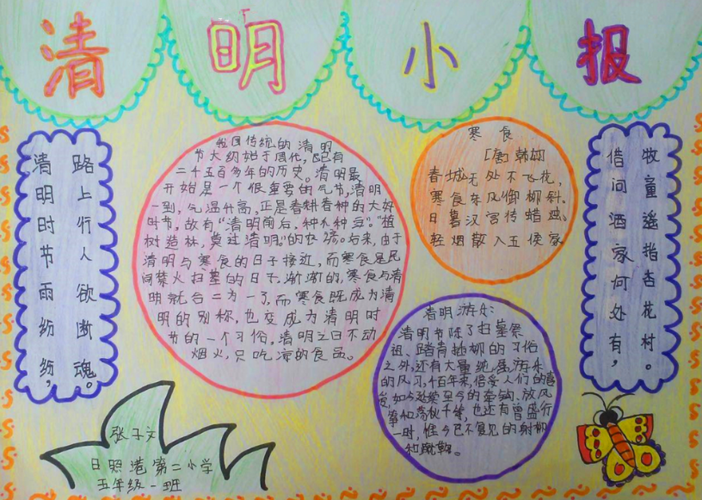 清明小报
清明时节雨纷纷，
路上行人欲断魂。
我国传统的清明
节大约始于周代，已有
二千五百多年的历史。清明最
开始是一个很重要的节气，清明
一到，气温升高，正是春耕春种的大好
时节，故有“清明前后，种瓜种豆”。“植
树造林，莫过清明”的农谚。后来，由于
清明与寒食的日子接近，而寒食是民
间禁火扫墓的日子，渐渐的，寒食与清
明就合二为一了，而寒食既成为清
明的别称，也变成为清明时
节的一个习俗，清明之日不动
烟火，只吃凉的食品。
寒食
[唐]韩翃
春城无处不飞花，
寒食东风御柳斜。
日暮汉宫传蜡烛，
轻烟散入五侯家
清明游乐：
清明节除了扫墓祭
祖、踏青插柳的习俗
之外，还有大量
的风习，千百年来，倍受人们的喜
爱，如今延续至今的牵钩、放风
筝和荡秋千等，也还有曾盛行
一时，惟今已不复见的射柳
和蹴鞠。
借问酒家何处有，
牧童遥指杏花村。
张子文
日照港第二小学
五年级一班